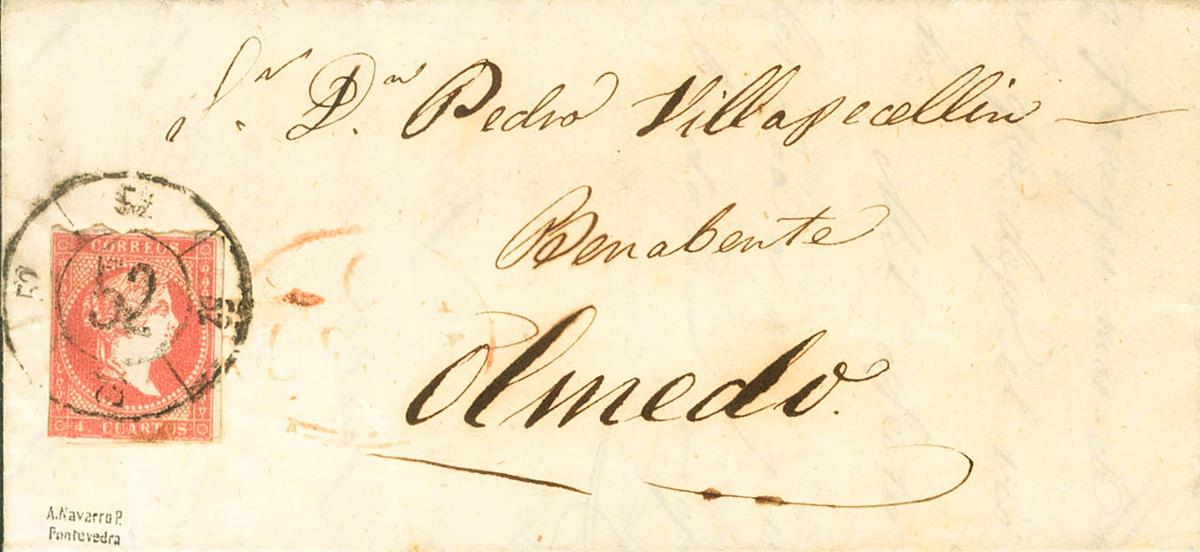 Sr. Dn. Pedro Villapecellin
Benabente
Olmedo.
52
52
52
52
52
CORREOS
4 CUARTOS
A. Navarro P.
Pontevedra